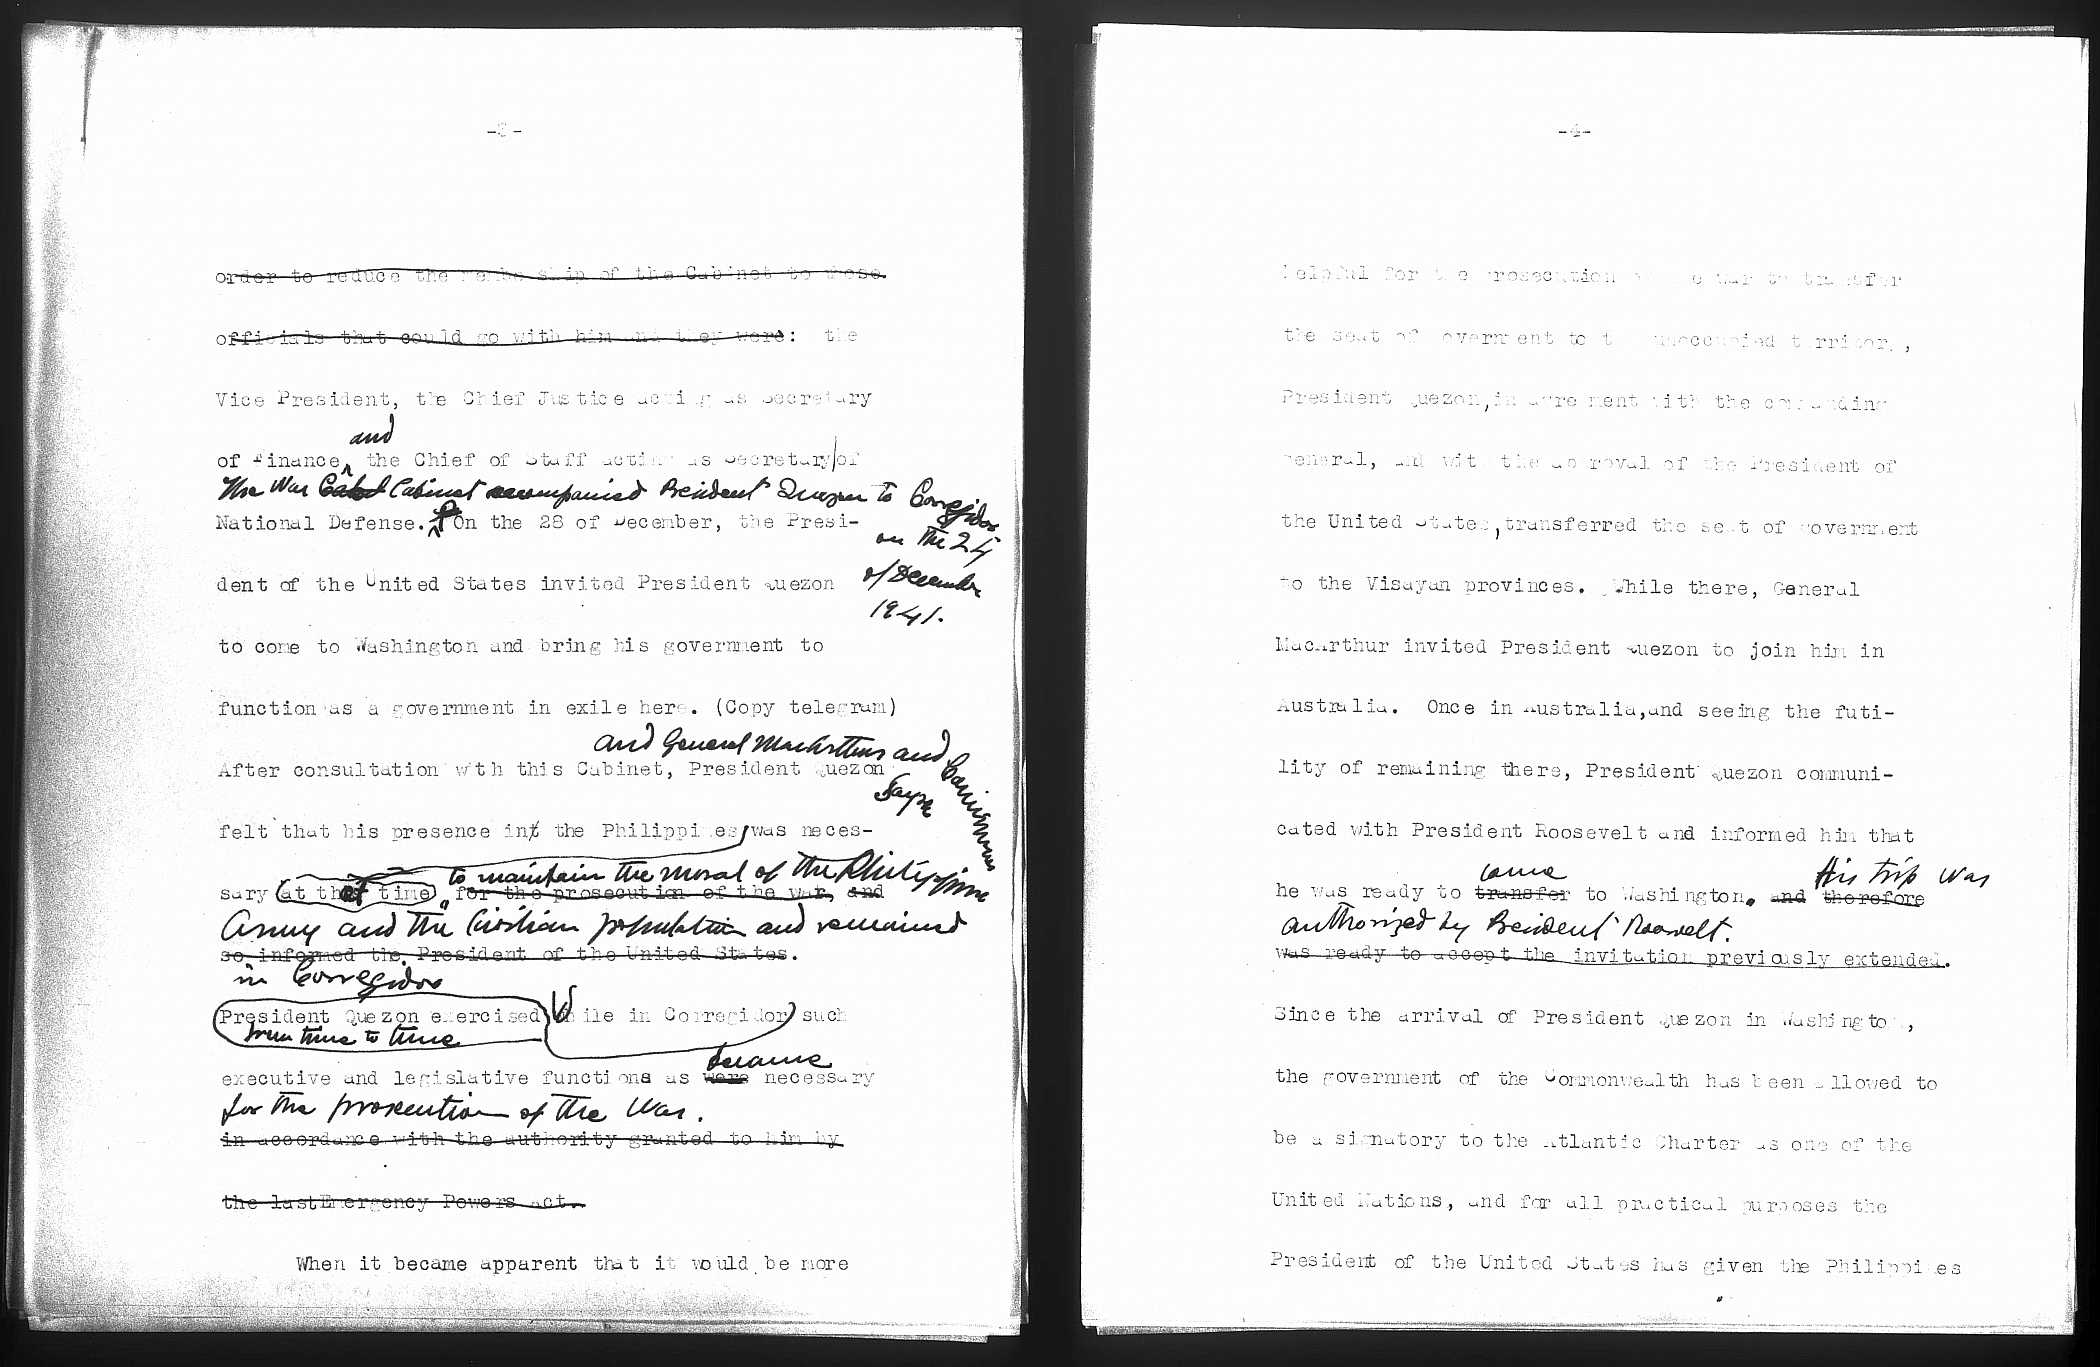 -3-
order to reduce the membership of the Cabinet to those
officials that could go with him and they were: the
Vice President, the Chief Justice acting as Secretary
and
of Finance, the Chief of Staff acting as Secretary of
The War Cabinet accompanied President Quezon to Corregidor
on the 24
of December
1941.
National Defense. On the 28 of December, the Presi-
dent of the United States invited President Quezon
to come to Washington and bring his government to
function as a government in exile here. (Copy telegram)
and General MacArthur and
Sayre
After consultation with this Cabinet, President Quezon
felt that his presence in the Philippines, was neces-
to maintain the moral of the Philippine
sary at that time, for the prosecution of the war, and
Army and the Civilian population and remained
so informed the President of the United States.
in Corregidor
President Quezon exercised While in Corregidor such
from time to time
became
executive and legislative functions as were necessary
for the prosecution of the War.
in accordance with the authority granted to him by
the last Emergency Powers Act.
When it became apparent that it would be more
-4-
helpful for the prosecution of the war to transfer
the seat of government to the unoccupied territory,
President Quezon,in agreement with the commanding
general, and with the approval of the President of
the United States,transferred the seat of government
to the Visayan provinces. While there, General
MacArthur invited President Quezon to join him in
Australia. Once in Australia,and seeing the futi-
lity of remaining there, President Quezon communi-
cated with President Roosevelt and informed him that
come His trip was
he was ready to transfer to Washington. and therefore
authorized by President Roosevelt.
was ready to accept the invitation previously extended.
Since the arrival of President Quezon in Washington,
the government of the Commonwealth has been allowed to
be a signatory to the Atlantic Charter as one of the
United Nations, and for all practical purposes the
President of the United States has given the Philippines